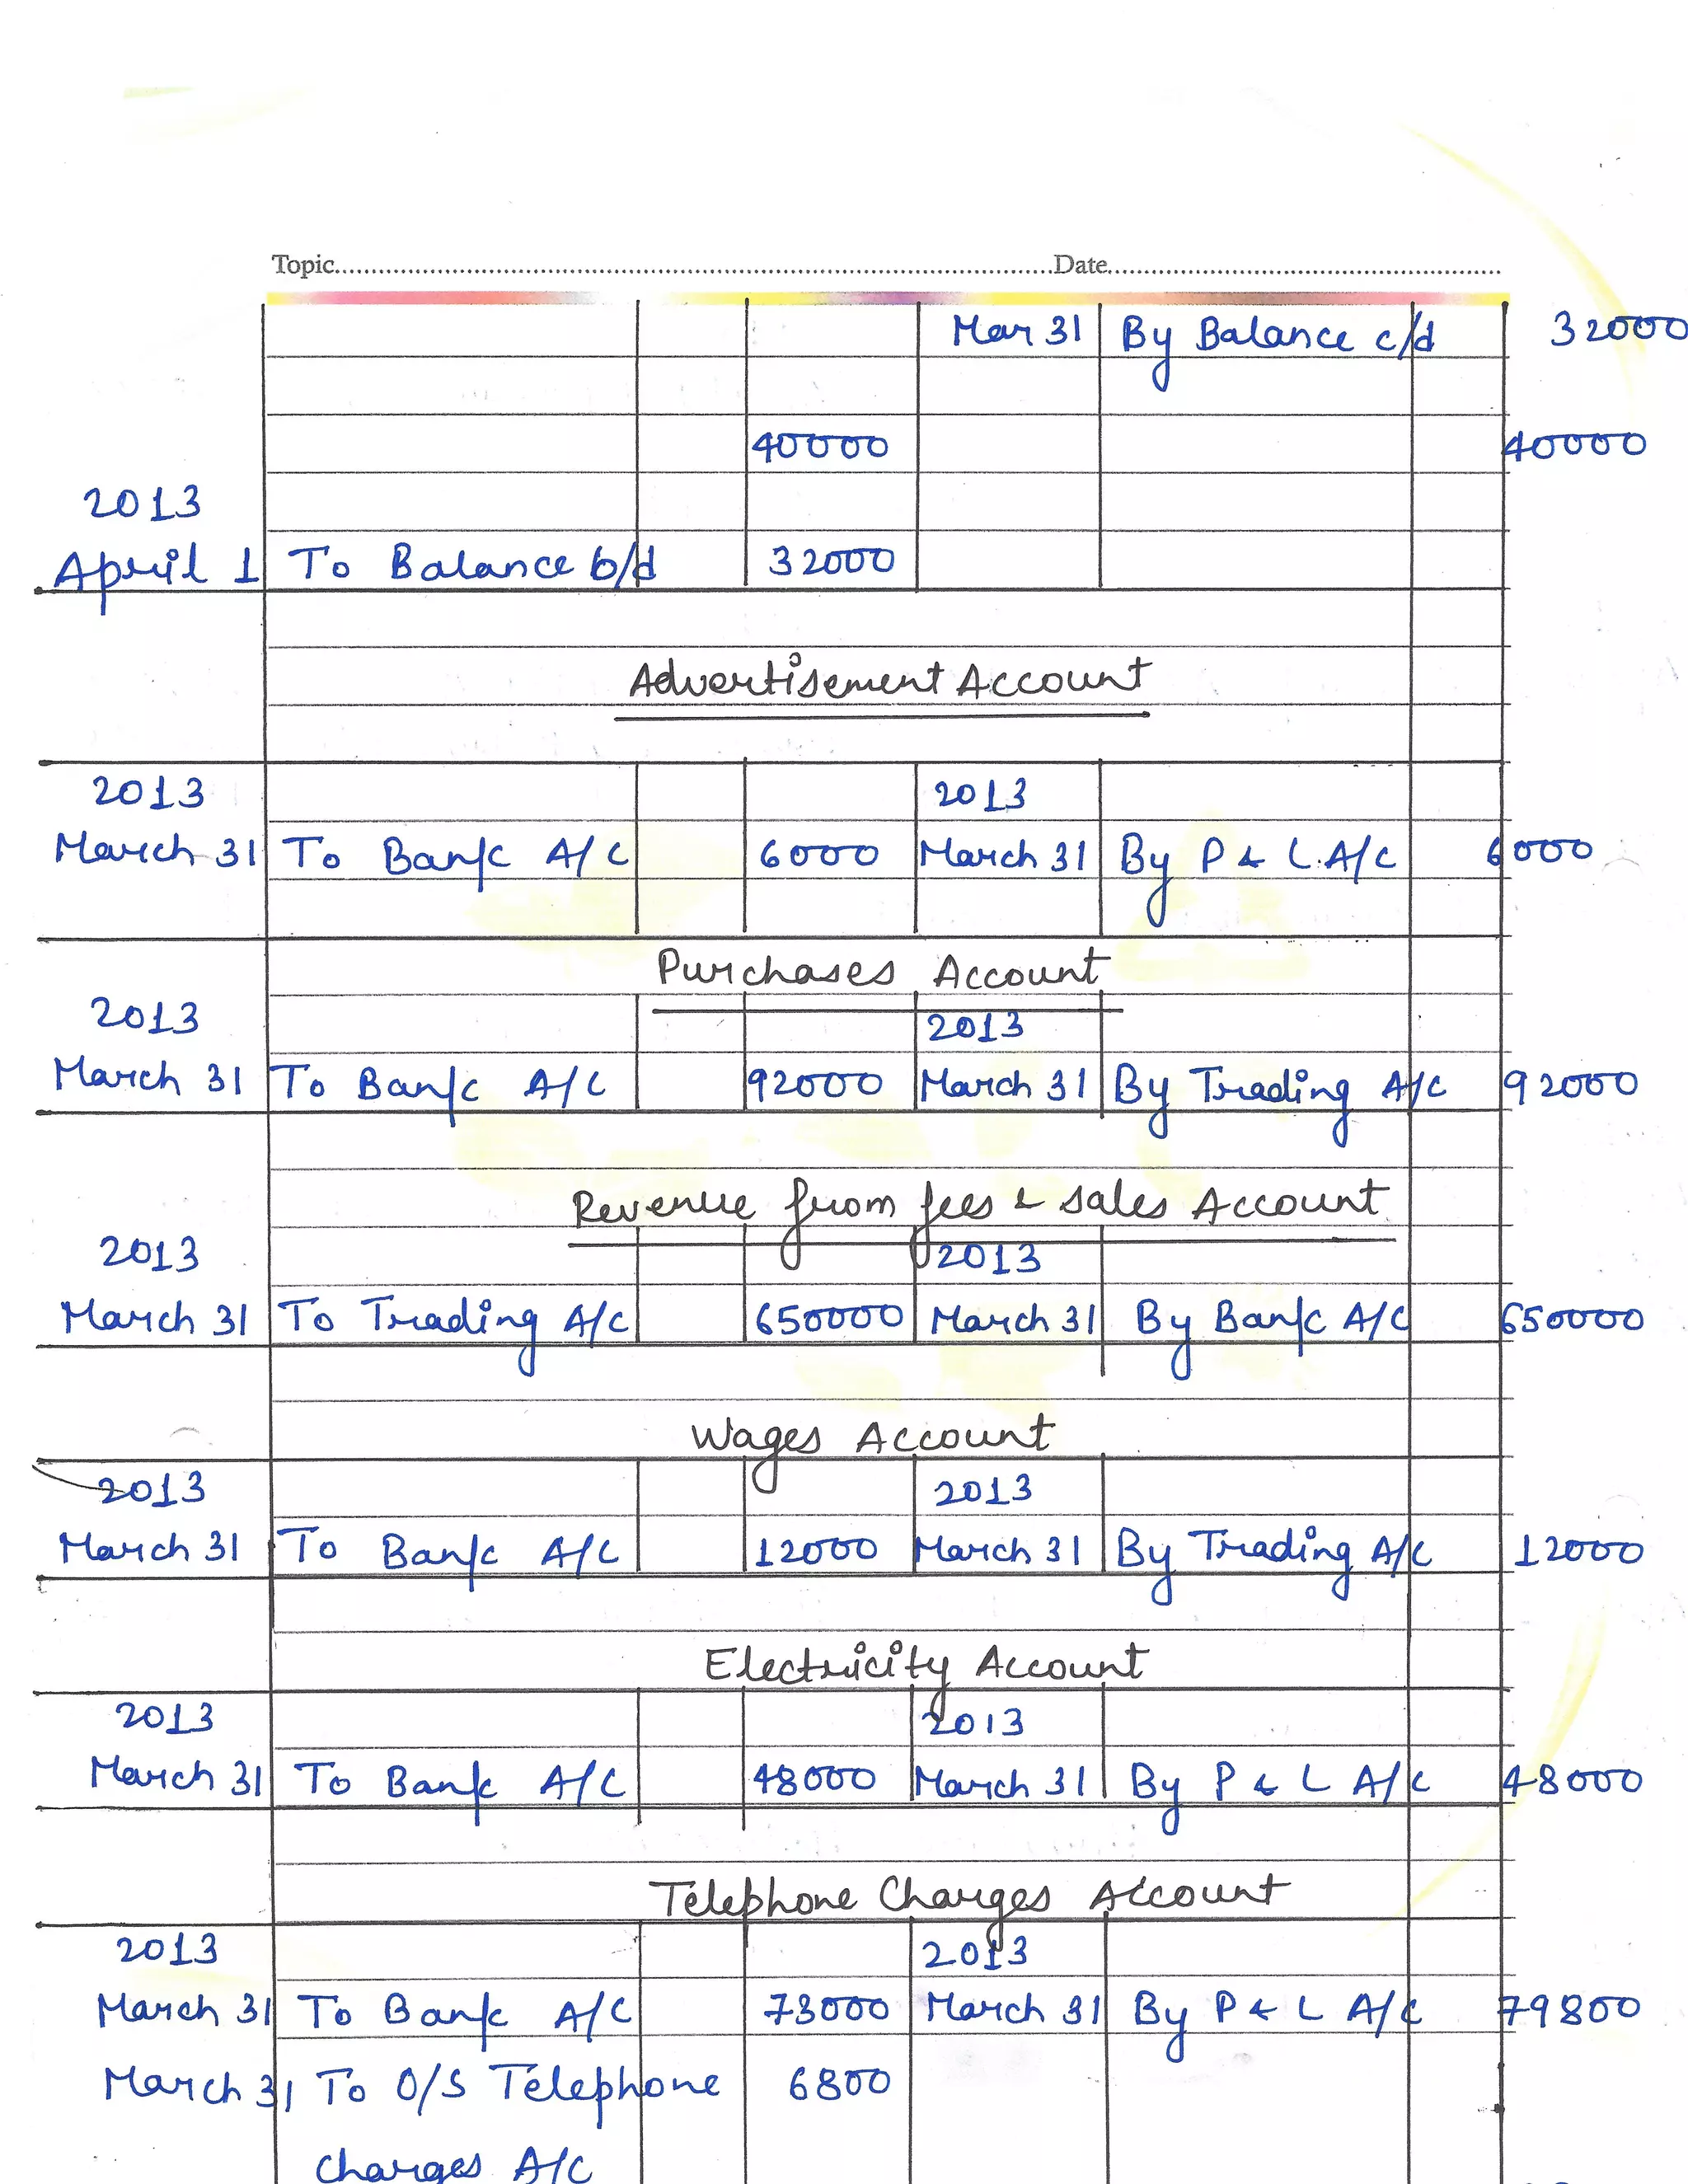 Topic Date
Mar 31 By Balance c/d 32000
40000 40000
2013
April 1 To Balance b/d 32000
Advertisement Account
2013 2013
March 31 To Bank A/C 6000 March 31 By P & L A/C 6000
Purchases Account
2013 2013
March 31 To Bank A/C 92000 March 31 By Trading A/C 92000
Revenue from fees & sales Account
2013 2013
March 31 To Trading A/C 650000 March 31 By Bank A/C 650000
Wages Account
2013 2013
March 31 To Bank A/C 12000 March 31 By Trading A/C 12000
Electricity Account
2013 2013
March 31 To Bank A/C 48000 March 31 By P & L A/C 48000
Telephone Charges Account
2013 2013
March 31 To Bank A/C 73000 March 31 By P & L A/C 79800
March 31 To O/S Telephone 6800
Charges A/C